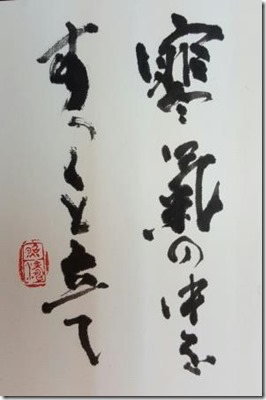 寒氣の中を
すっくと立て